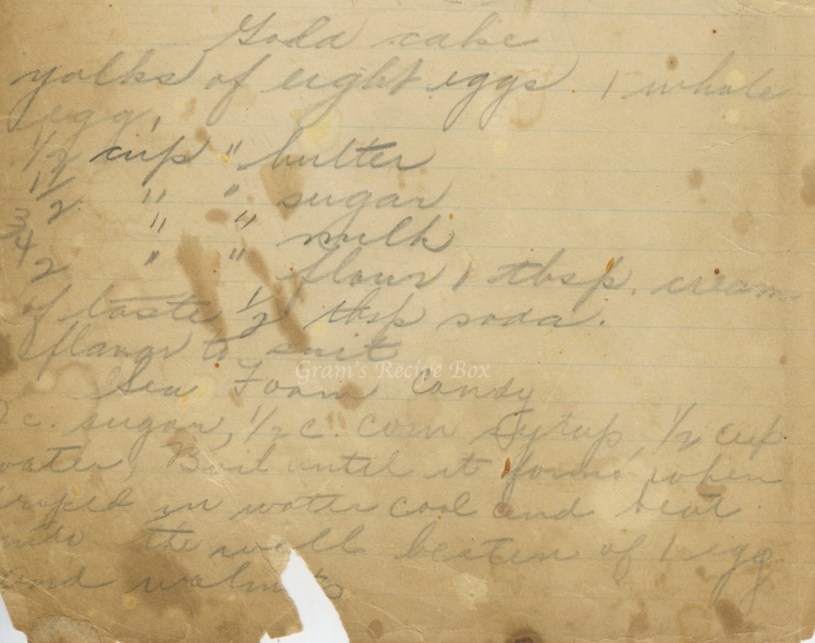 Gold cake
yolks of eight eggs. 1 whole
egg,
1/2 cup " butter
1 1/2 " " sugar
3/4 " " milk
2 " " flour 1 tbsp. cream
of taste 1/2 tbsp soda.
flavor to suit
Gram's Recipe Box
Sea Foam Candy
c. sugar, 1/2 c. corn syrup, 1/2 cup
water, Boil until it forms when
droped in water cool and beat
the well beaten of 1 egg
and walnuts